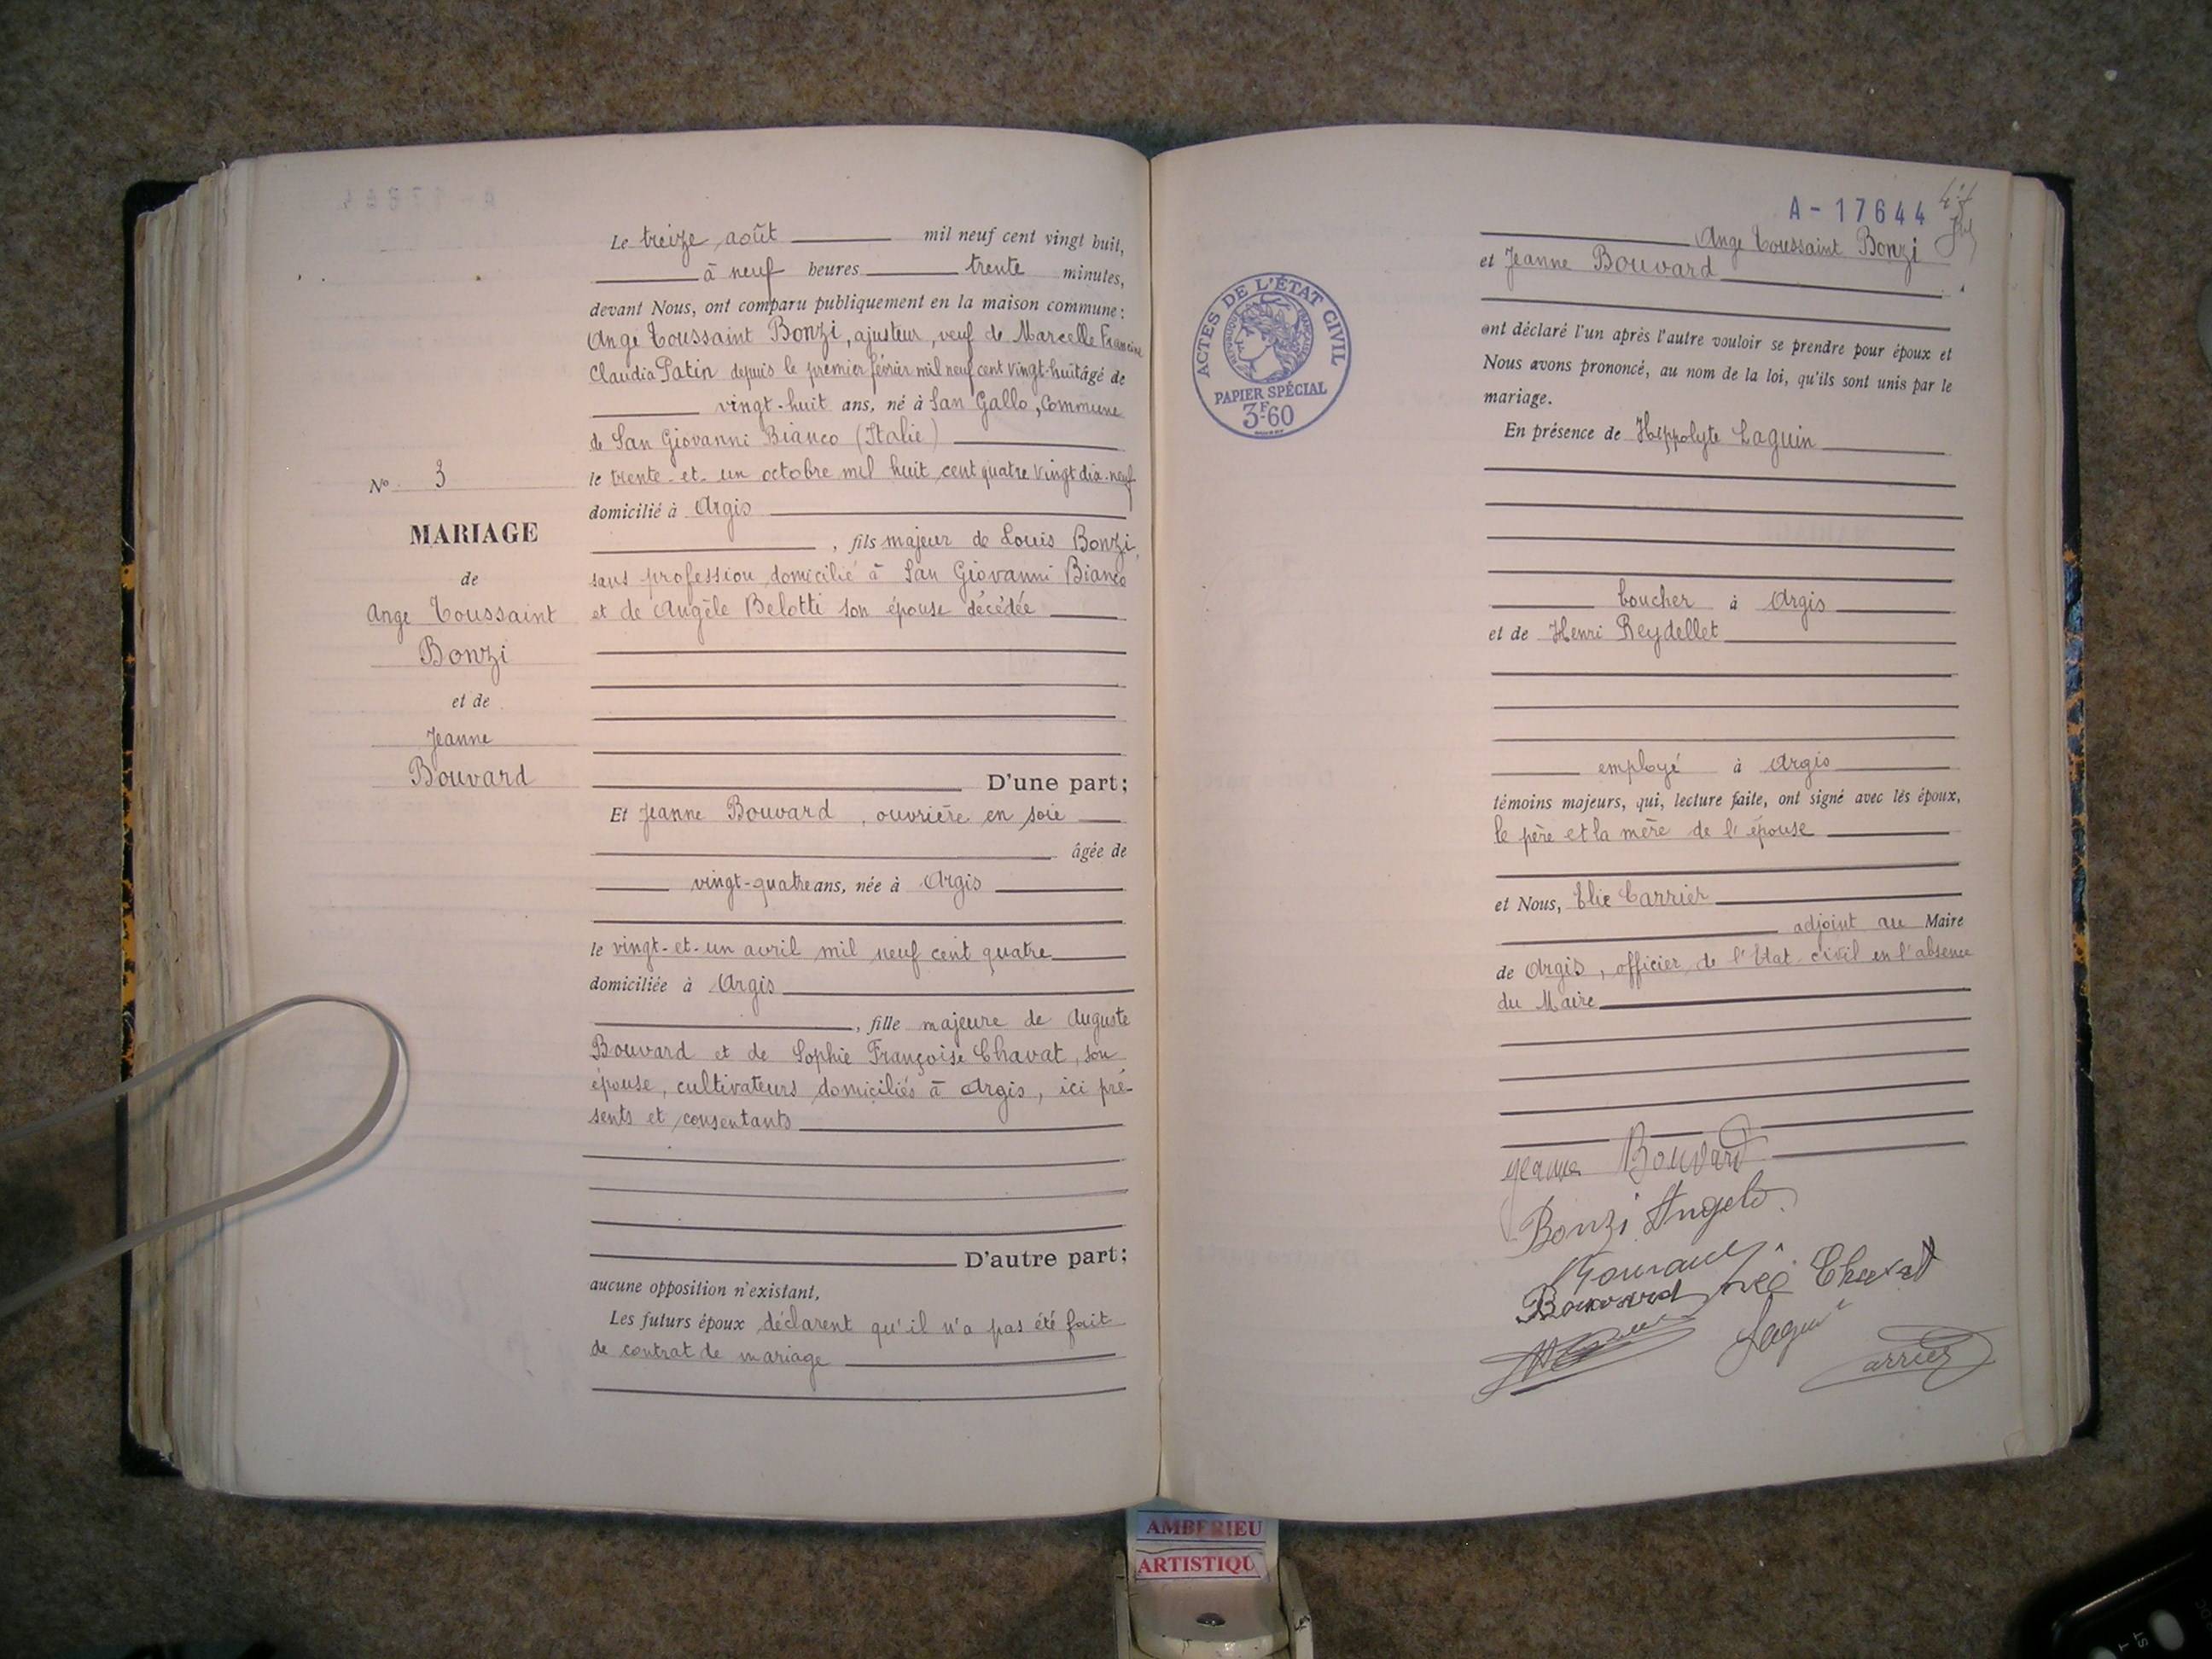 Le treize août mil neuf cent vingt huit,
à neuf heures trente minutes,
devant Nous, ont comparu publiquement en la maison commune :
Ange Toussaint Bonzi, ajusteur, veuf de Marcelle Francine
Claudia Patin depuis le premier février mil neuf cent vingt-huit âgé de
vingt-huit ans, né à San Gallo, Commune
de San Giovanni Bianco (Italie)
le trente-et-un octobre mil huit cent quatre vingt dix-neuf
domicilié à Argis
, fils majeur de Louis Bonzi,
sans profession domicilié à San Giovanni Bianco
et de Angèle Belotti son épouse décédée
D'une part;
Et Jeanne Bouvard, ouvrière en soie
âgée de
vingt-quatre ans, née à Argis
le vingt-et-un avril mil neuf cent quatre
domiciliée à Argis
, fille majeure de Auguste
Bouvard et de Sophie Françoise Chavat, son
épouse, cultivateurs domiciliés à Argis, ici pré-
sents et consentants
D'autre part;
aucune opposition n'existant,
Les futurs époux déclarent qu'il n'a pas été fait
de contrat de mariage
No 3
MARIAGE
de
Ange Toussaint
Bonzi
et de
Jeanne
Bouvard
A-17644
Ange Toussaint Bonzi
et Jeanne Bouvard
ont déclaré l'un après l'autre vouloir se prendre pour époux et
Nous avons prononcé, au nom de la loi, qu'ils sont unis par le
mariage.
En présence de Hippolyte Laguin
boucher à Argis
et de Henri Reydellet
employé à Argis
témoins majeurs, qui, lecture faite, ont signé avec les époux,
le père et la mère de l'épouse
et Nous, Elie Carrier
adjoint au Maire
de Argis, officier de l'Etat-civil en l'absence
du Maire
Jeanne Bouvard
Bonzi Angelo
Bouvard née Chavat
Carrier
ACTES DE L'ÉTAT CIVIL
RÉPUBLIQUE FRANÇAISE
PAPIER SPÉCIAL
3F.60
AMBERIEU
ARTISTIQU